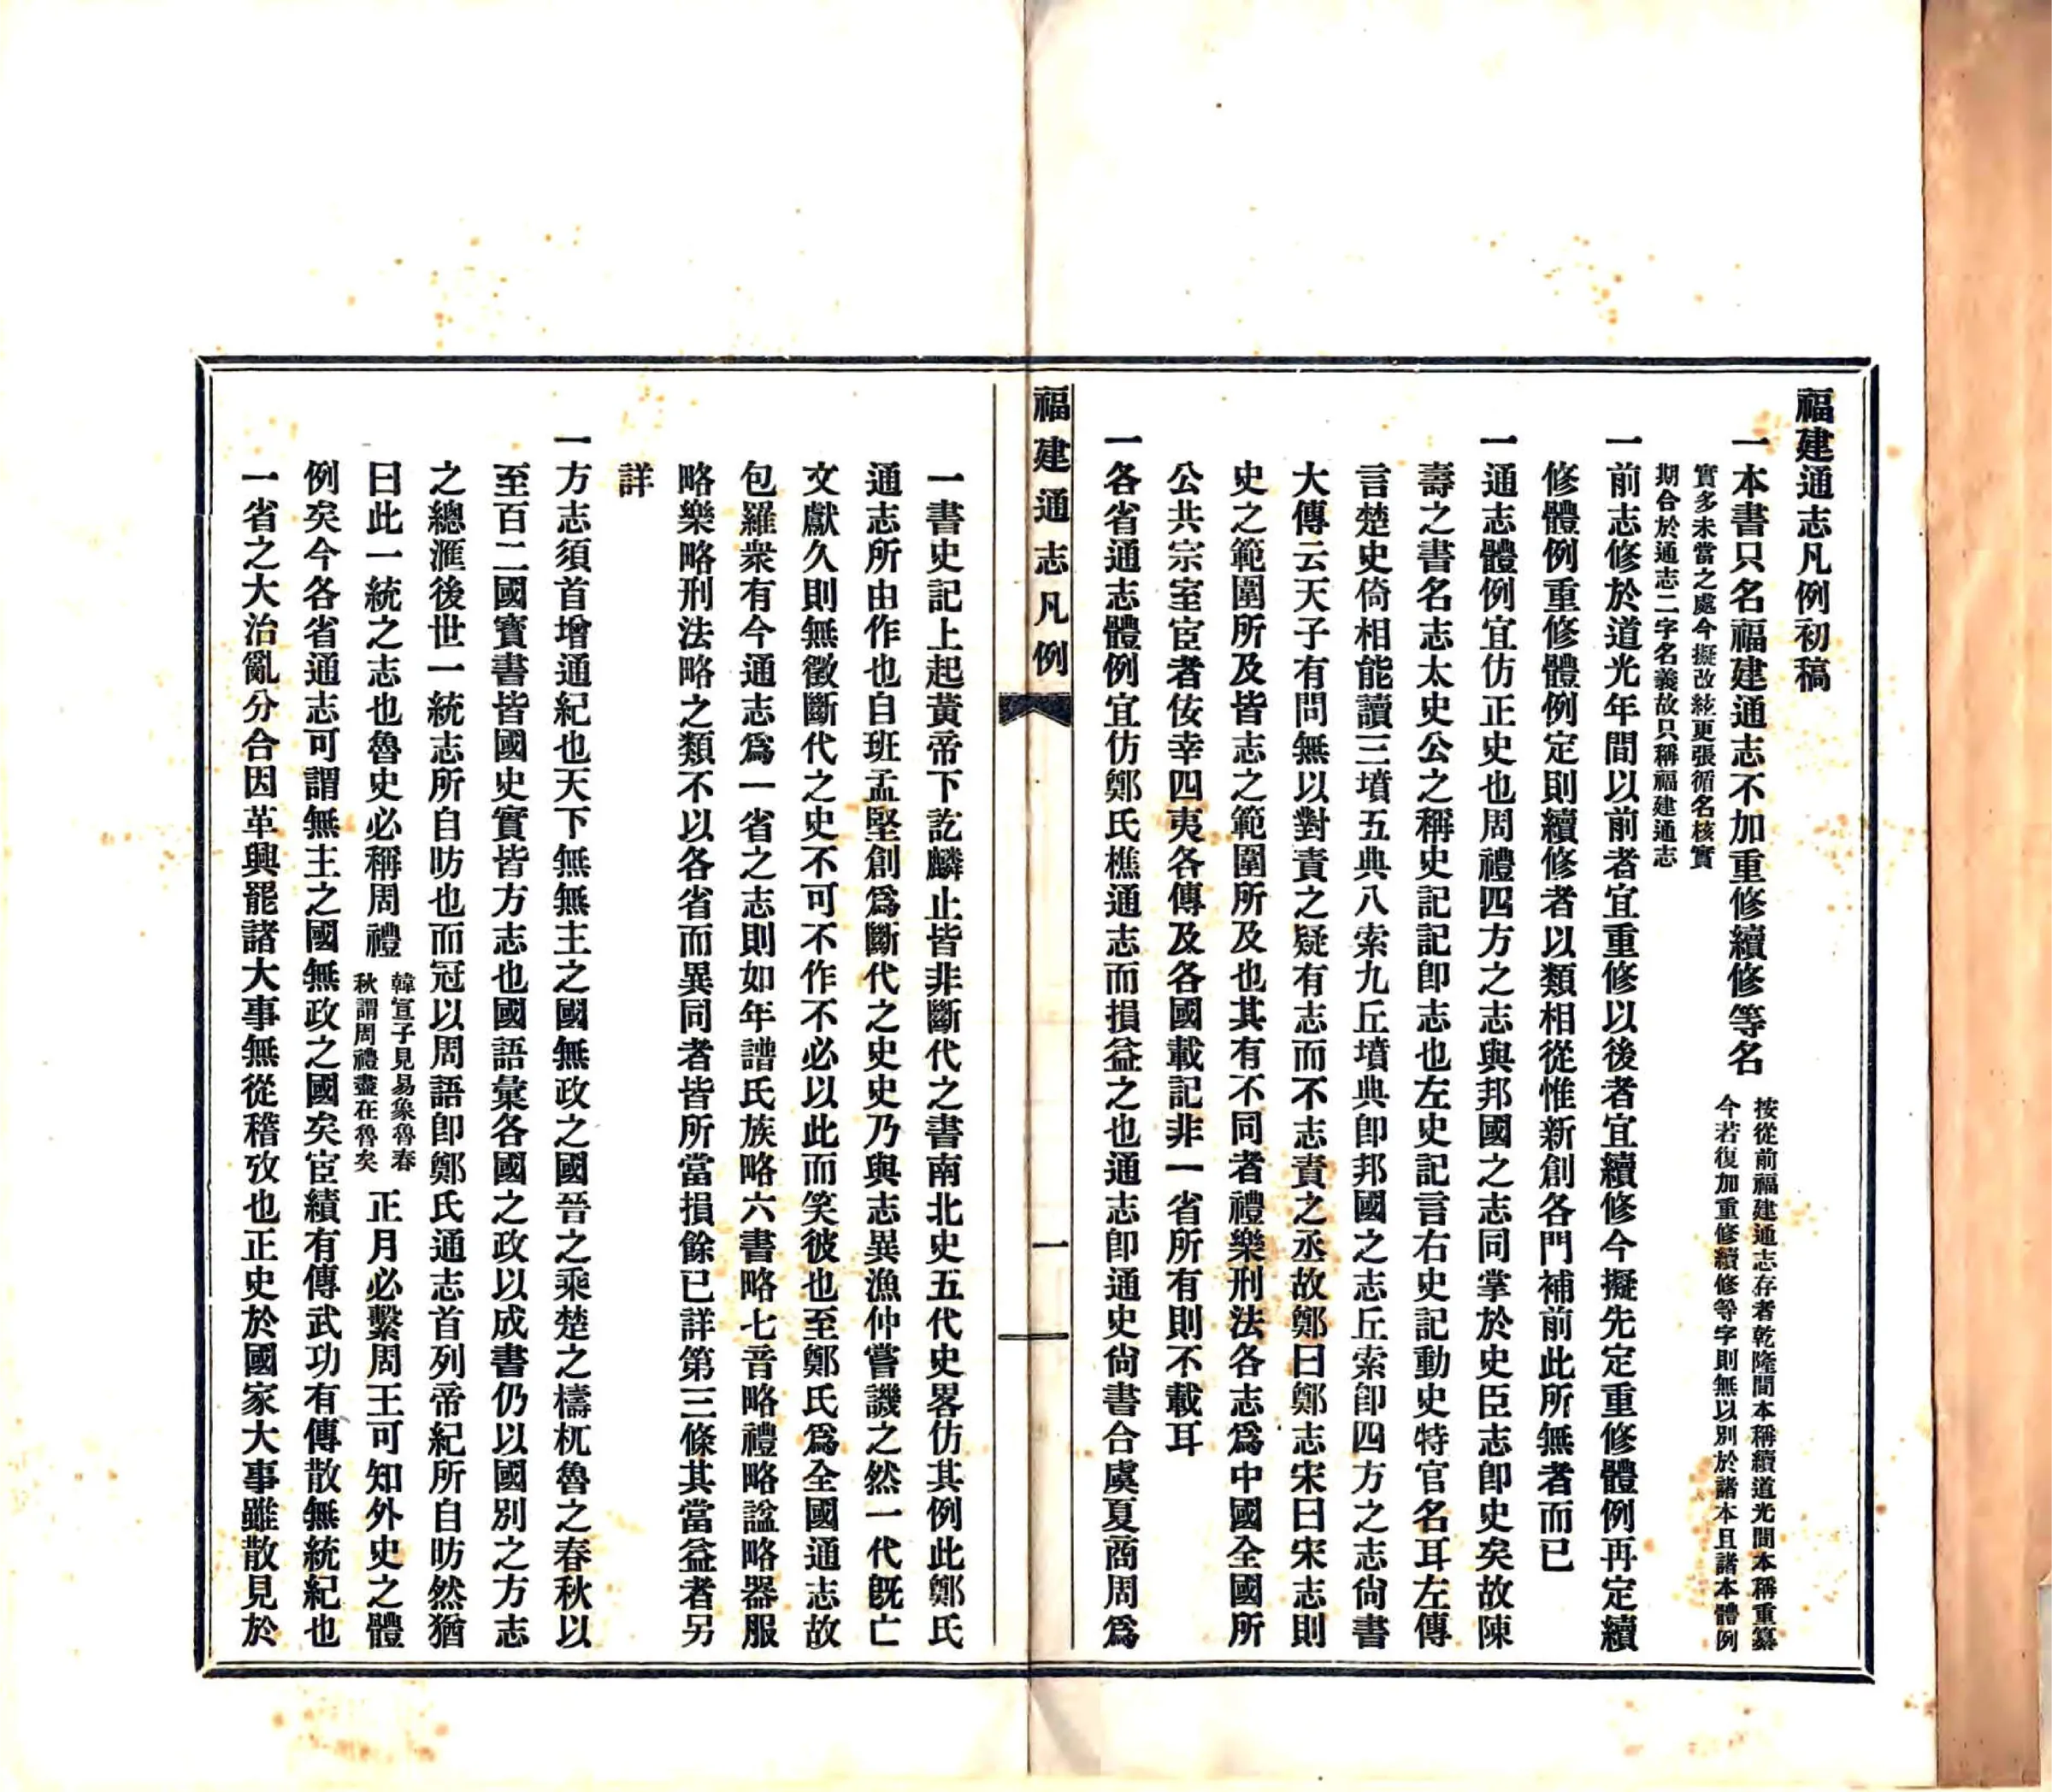 福建通志凡例初稿
一本書只名福建通志不加重修續修等名
按從前福建通志存者乾隆間本稱續道光間本稱重纂
今若復加重修續修等字則無以別於諸本且諸本體例
實多未當之處今擬改絃更張循名核實
期合於通志二字名義故只稱福建通志
一前志修於道光年間以前者宜重修以後者宜續修今擬先定重修體例再定續
修體例重修體例定則續修者以類相從惟新創各門補前此所無者而已
一通志體例宜仿正史也周禮四方之志與邦國之志同掌於史臣志卽史矣故陳
壽之書名志太史公之稱史記記卽志也左史記言右史記動史特官名耳左傳
言楚史倚相能讀三墳五典八索九丘墳典卽邦國之志丘索卽四方之志尙書
大傳云天子有問無以對責之疑有志而不志責之丞故鄭曰鄭志宋曰宋志則
史之範圍所及皆志之範圍所及也其有不同者禮樂刑法各志爲中國全國所
公共宗室宦者佞幸四夷各傳及各國載記非一省所有則不載耳
一各省通志體例宜仿鄭氏樵通志而損益之也通志卽通史尙書合虞夏商周爲
福建通志凡例
一
一書史記上起黃帝下訖麟止皆非斷代之書南北史五代史畧仿其例此鄭氏
通志所由作也自班孟堅創爲斷代之史史乃與志異漁仲嘗譏之然一代旣亡
文獻久則無徵斷代之史不可不作不必以此而笑彼也至鄭氏爲全國通志故
包羅衆有今通志爲一省之志則如年譜氏族略六書略七音略禮略諡略器服
略樂略刑法略之類不以各省而異同者皆所當損餘已詳第三條其當益者另
詳
一方志須首增通紀也天下無無主之國無政之國晉之乘楚之檮杌魯之春秋以
至百二國寶書皆國史實皆方志也國語彙各國之政以成書仍以國別之方志
之總滙後世一統志所自昉也而冠以周語卽鄭氏通志首列帝紀所自昉然猶
曰此一統之志也魯史必稱周禮
韓宣子見易象魯春
秋謂周禮盡在魯矣
正月必繫周王可知外史之體
例矣今各省通志可謂無主之國無政之國矣宦績有傳武功有傳散無統紀也
一省之大治亂分合因革興罷諸大事無從稽攷也正史於國家大事雖散見於